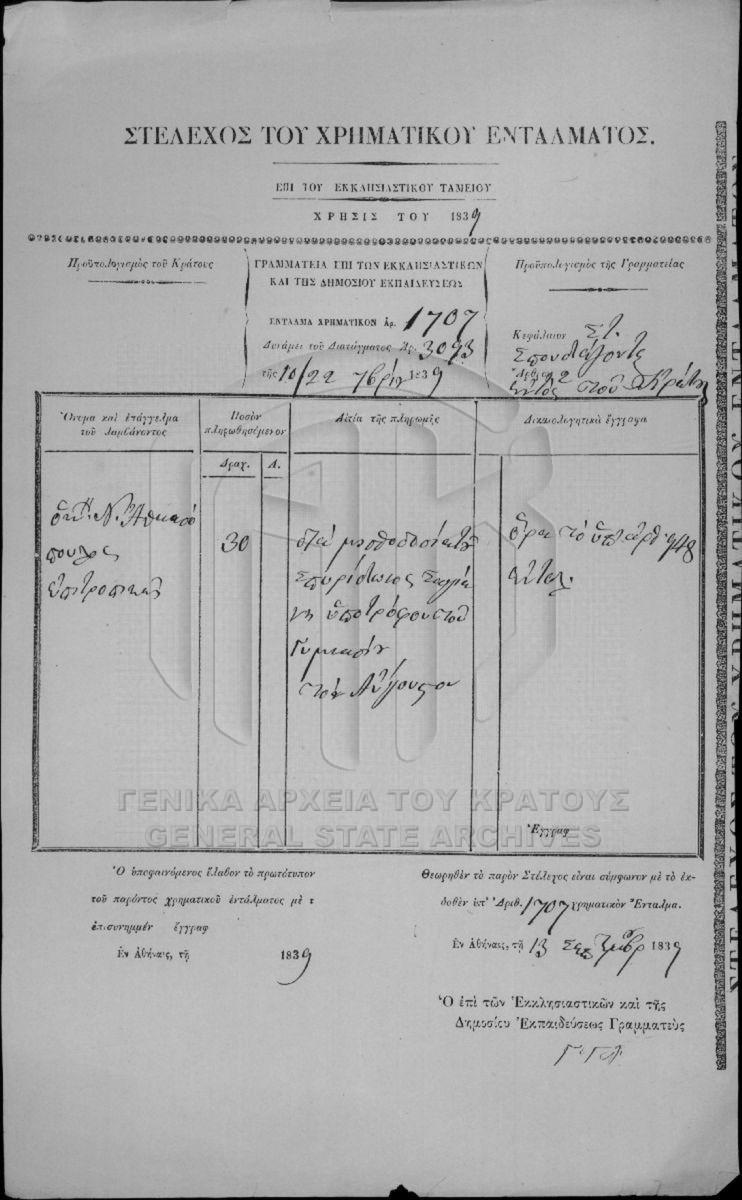 ΣΤΕΛΕΧΟΣ ΤΟΥ ΧΡΗΜΑΤΙΚΟΥ ΕΝΤΑΛΜΑΤΟΣ.
ΕΠΙ ΤΟΥ ΕΚΚΛΗΣΙΑΣΤΙΚΟΥ ΤΑΜΕΙΟΥ
ΧΡΗΣΙΣ ΤΟΥ 1839
Προϋπολογισμὸς τοῦ Κράτους
ΓΡΑΜΜΑΤΕΙΑ ΕΠΙ ΤΩΝ ΕΚΚΛΗΣΙΑΣΤΙΚΩΝ
ΚΑΙ ΤΗΣ ΔΗΜΟΣΙΟΥ ΕΚΠΑΙΔΕΥΣΕΩΣ
ΕΝΤΑΛΜΑ ΧΡΗΜΑΤΙΚΟΝ Ἀρ. 1707
Δυνάμει τοῦ Διατάγματος Ἀρ. 3093
τῆς 10/22 7βρίου 1839
Προϋπολογισμὸς τῆς Γραμματείας
Κεφάλαιον ΣΤ.
Σπουδάζοντες
Ἄρθρον 2
ἐντὸς τοῦ Κράτους
Ὄνομα καὶ ἐπάγγελμα
τοῦ λαμβάνοντος
Ποσὸν
πληρωθησόμενον
Αἰτία τῆς πληρωμῆς
Δικαιολογητικὰ ἔγγραφα
Δραχ. Λ.
πουλος
ἐπιτροπικῶς
30
διὰ μισθοδοσίαν τοῦ
Σπυρίδωνος
ὑποτρόφου τοῦ
Γυμνασίου
τὸν Αὔγουστον
ὅρα τὸ ὑπ' ἀρθ. 948
ἔνταλ.
Ἔγγραφ
ΓΕΝΙΚΑ ΑΡΧΕΙΑ ΤΟΥ ΚΡΑΤΟΥΣ
GENERAL STATE ARCHIVES
Ὁ ὑποφαινόμενος ἔλαβον τὸ πρωτότυπον
τοῦ παρόντος χρηματικοῦ ἐντάλματος μὲ τ
ἐπισυνημμέν ἔγγραφ
Ἐν Ἀθήναις, τῇ 1839
Θεωρηθὲν τὸ παρὸν Στέλεχος εἶναι σύμφωνον μὲ τὸ ἐκ-
δοθὲν ὑπ' Ἀριθ. 1707 χρηματικὸν Ἔνταλμα.
Ἐν Ἀθήναις, τῇ 13 Σεπτεμβρ 1839
Ὁ ἐπὶ τῶν Ἐκκλησιαστικῶν καὶ τῆς
Δημοσίου Ἐκπαιδεύσεως Γραμματεὺς